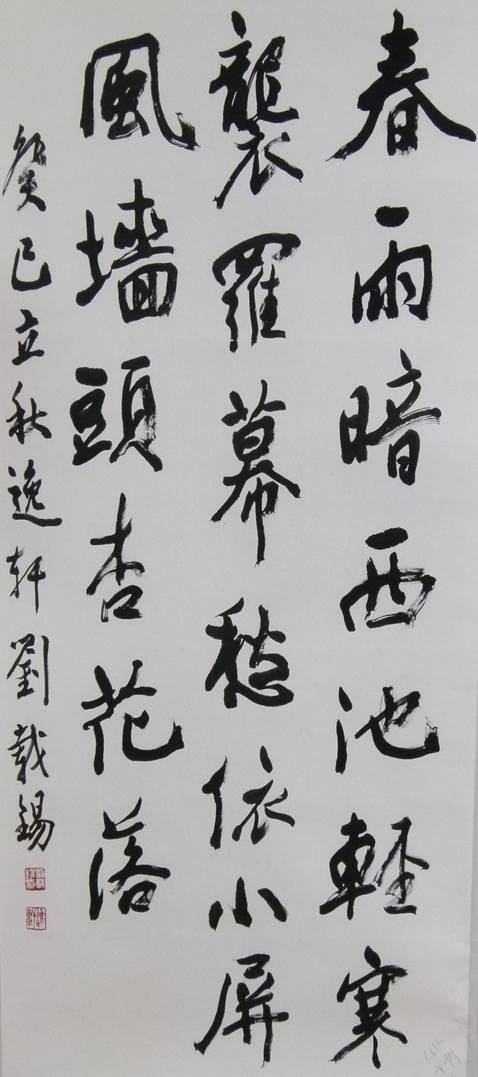 春雨暗西池輕寒
襲羅幕愁依小屏
風墻頭杏花落
癸巳立秋逸軒劉載錫